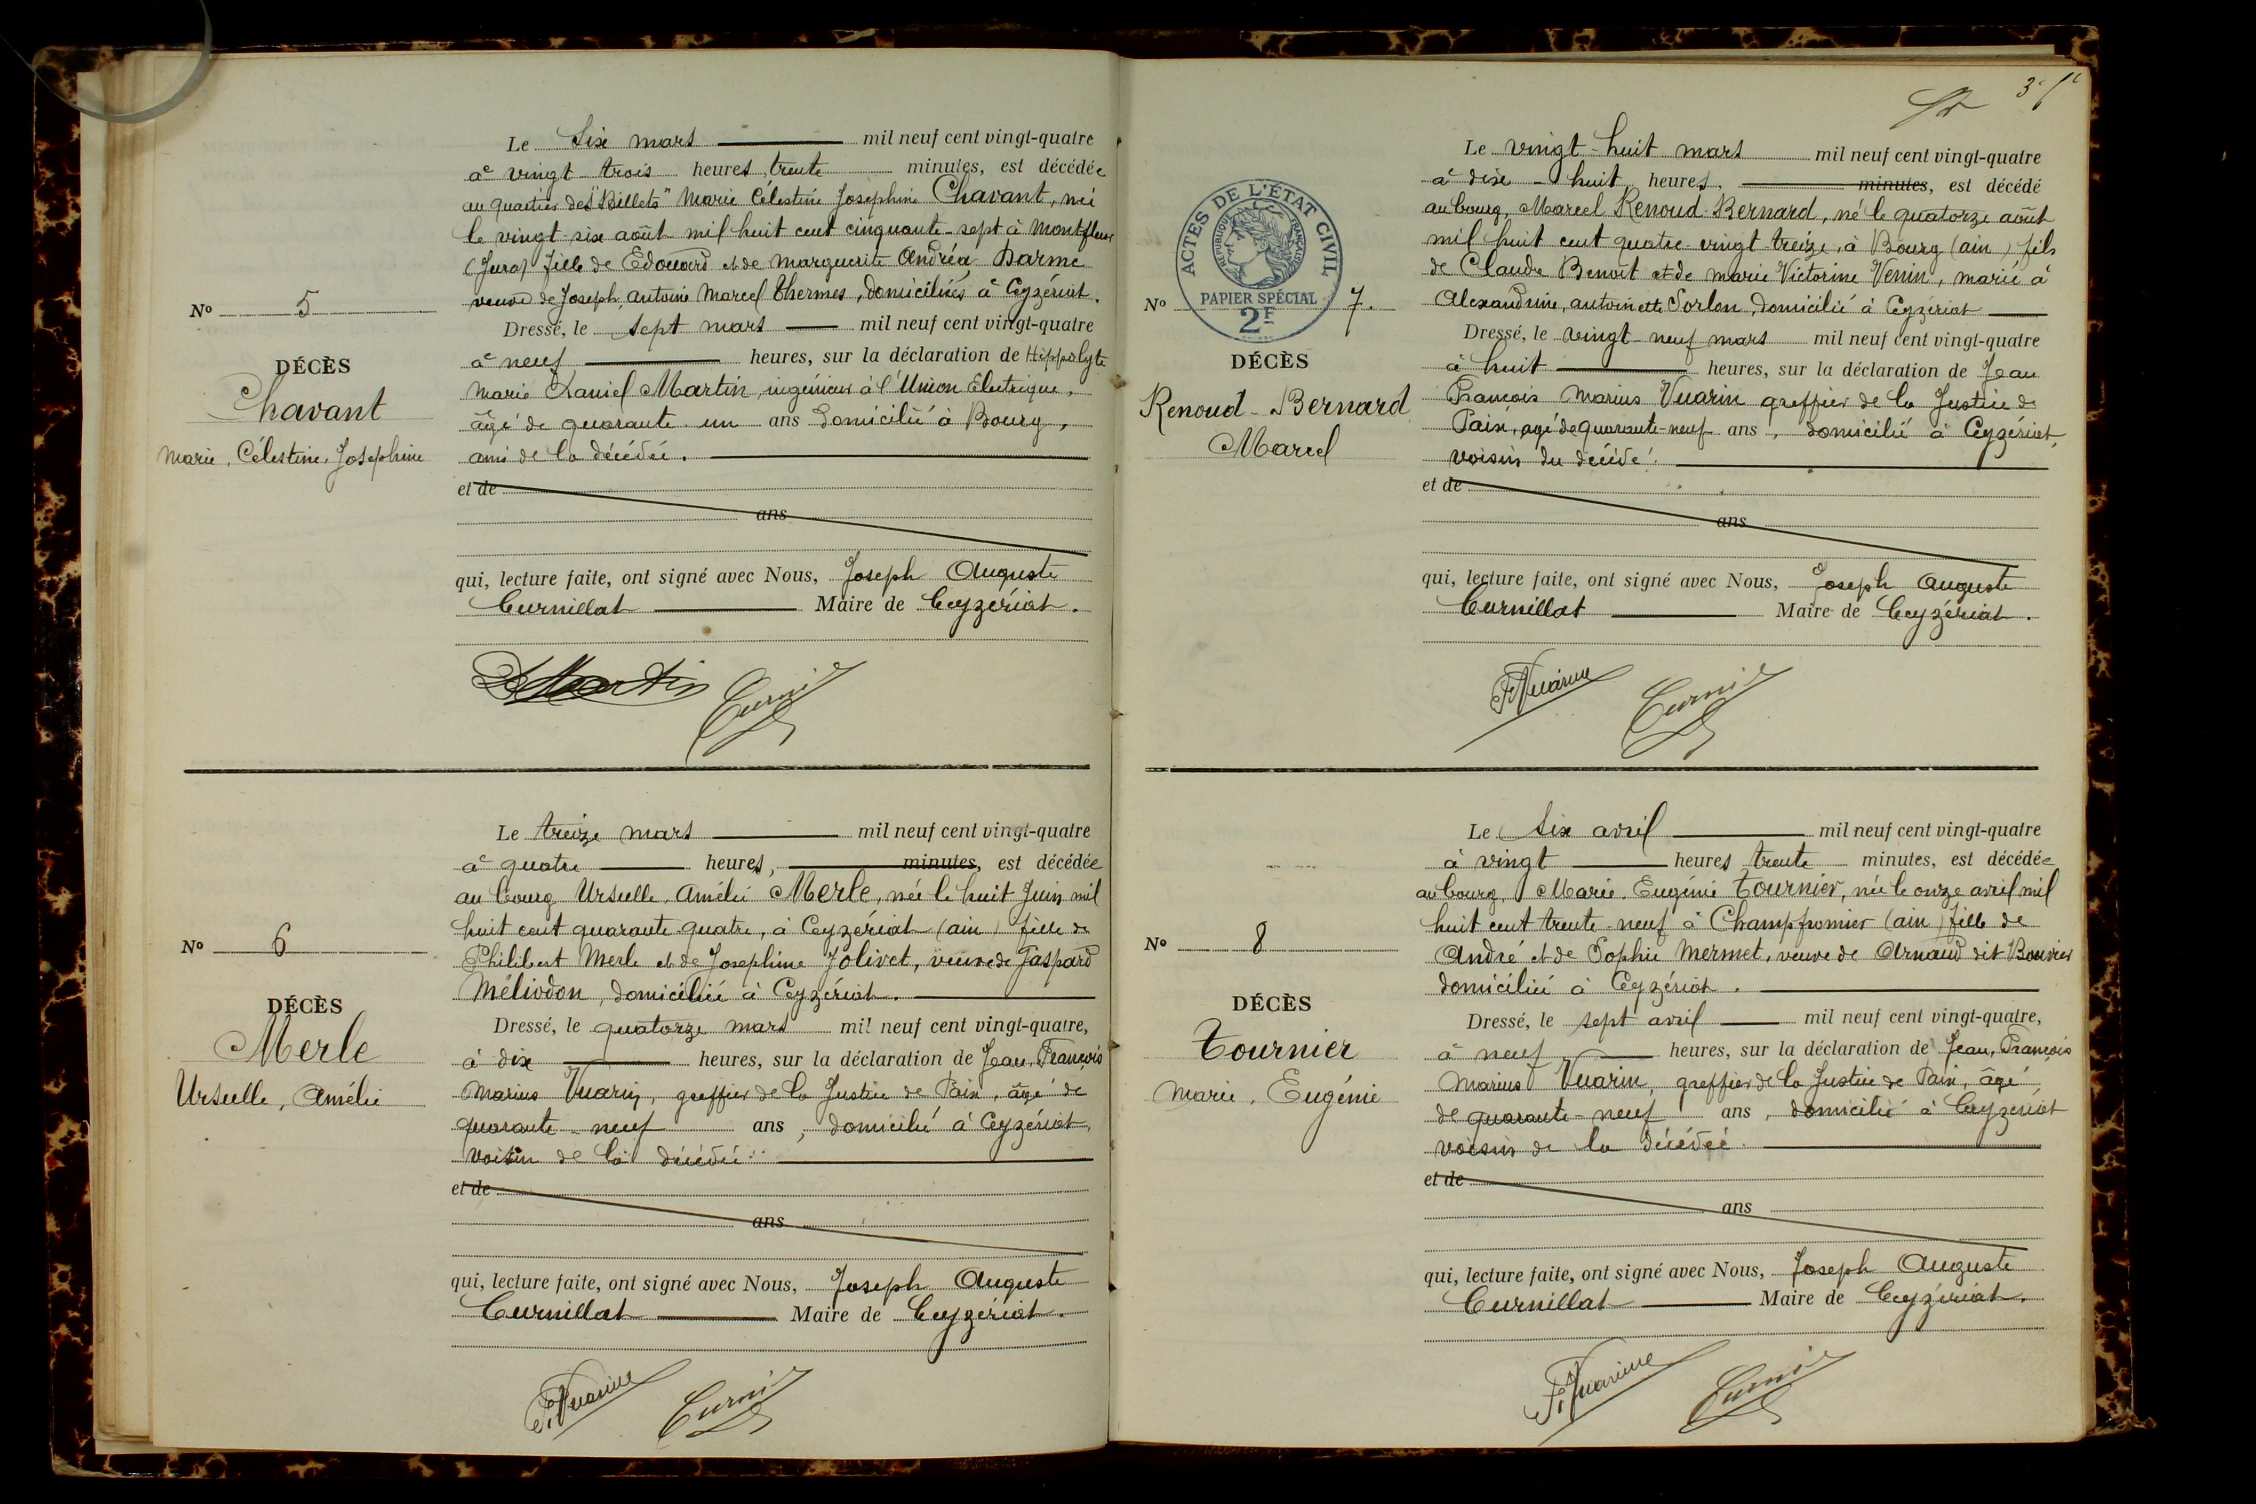 Le six mars mil neuf cent vingt-quatre
à vingt-trois heures, trente minutes, est décédée
au quartier des "Billets" Marie Célestine Josephine Chavant, née
le vingt-six août mil huit cent cinquante-sept à Montfleur
(Jura) fille de Edouard et de Marguerite Andréa Darme
veuve de Joseph, Antoine Marcel Thermes, domiciliée à Ceyzériat.
Nº 5
Dressé, le sept mars mil neuf cent vingt-quatre
à neuf heures, sur la déclaration de Hippolyte
Marie Daniel Martin, ingénieur à l'Union Electrique,
âgé de quarante-un ans domicilié à Bourg,
ami de la décédée.
DÉCÈS
Chavant
Marie, Célestine, Josephine
et de
ans
qui, lecture faite, ont signé avec Nous, Joseph Auguste
Curnillat Maire de Ceyzériat.
DMartin Curni
Le treize mars mil neuf cent vingt-quatre
à quatre heures, minutes, est décédée
au bourg Ursulle, Amélie Merle, née le huit Juin mil
huit cent quarante-quatre, à Ceyzériat (Ain) fille de
Philibert Merle et de Josephine Jolivet, veuve de Gaspard
Méliodon, domiciliée à Ceyzériat.
Nº 6
Dressé, le quatorze mars mil neuf cent vingt-quatre,
à dix heures, sur la déclaration de Jean, François
Marius Vuarin, greffier de la Justice de Paix, âgé de
quarante-neuf ans, domicilié à Ceyzériat,
voisin de la décédée.
DÉCÈS
Merle
Ursulle, Amélie
et de
ans
qui, lecture faite, ont signé avec Nous, Joseph Auguste
Curnillat Maire de Ceyzériat.
F. Vuarin Curni
3e
Le vingt-huit mars mil neuf cent vingt-quatre
à dix-huit heures, minutes, est décédé
au bourg, Marcel Renoud-Bernard, né le quatorze août
mil huit cent quatre-vingt-treize, à Bourg (Ain) fils
de Claude Benoit et de Marie Victorine Venin, marié à
Alexandrine, Antoinette Sorlon, domicilié à Ceyzériat
ACTES DE L'ÉTAT CIVIL
RÉPUBLIQUE FRANÇAISE
PAPIER SPÉCIAL
2F
Nº 7.
Dressé, le vingt-neuf mars mil neuf cent vingt-quatre
à huit heures, sur la déclaration de Jean
François Marius Vuarin greffier de la Justice de
Paix, âgé de quarante-neuf ans, domicilié à Ceyzériat,
voisin du décédé.
DÉCÈS
Renoud-Bernard
Marcel
et de
ans
qui, lecture faite, ont signé avec Nous, Joseph Auguste
Curnillat Maire de Ceyzériat.
F. Vuarin Curni
Le six avril mil neuf cent vingt-quatre
à vingt heures trente minutes, est décédée
au bourg, Marie, Eugénie Tournier, née le onze avril mil
huit cent trente-neuf à Champfromier (Ain) fille de
André et de Sophie Mermet, veuve de Arnaud dit Bouvier
domiciliée à Ceyzériat.
Nº 8
Dressé, le sept avril mil neuf cent vingt-quatre,
à neuf heures, sur la déclaration de Jean, François
Marius Vuarin, greffier de la Justice de Paix, âgé
de quarante-neuf ans, domicilié à Ceyzériat
voisin de la décédée.
DÉCÈS
Tournier
Marie, Eugénie
et de
ans
qui, lecture faite, ont signé avec Nous, Joseph Auguste
Curnillat Maire de Ceyzériat.
F. Vuarin Curni